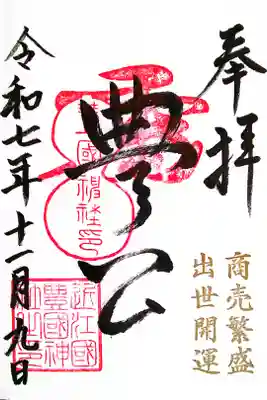 奉拝
商売繁盛
出世開運
豊公
豊国神社印
近江國
豊國神
社之印
令和七年十一月九日